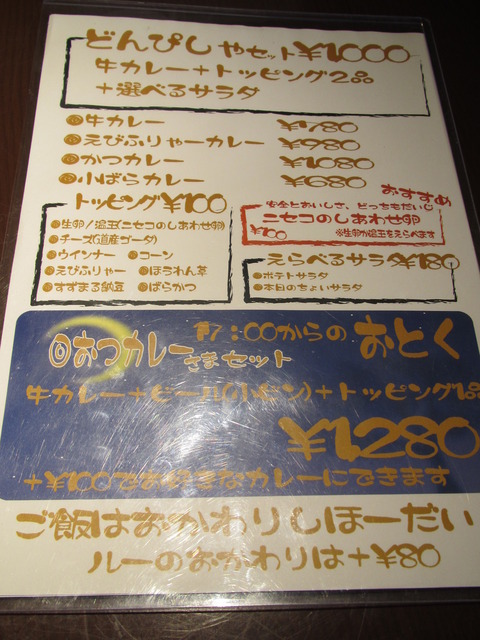 どんぴしゃセット¥1,000
牛カレー+トッピング2品
+選べるサラダ
牛カレー
えびふりゃーカレー ¥980
かつカレー ¥1080
小ばらカレー ¥980
トッピング¥100
生卵/温玉(ニセコのしあわせ卵)
チーズ(道産ゴーダ)
ウインナー コーン
えびふりゃー ほうれん草
すずまる納豆 ばらかつ
おすすめ
安全とおいしさ、どっちもだいじ
ニセコのしあわせ卵
¥100 ※生卵か温玉をえらべます
えらべるサラダ¥180
ポテトサラダ
本日のちょいサラダ
17:00からの おとく
回おつカレーさまセット
牛カレー+ビール(小ビン)+トッピング1品
¥1280
+¥100でお好きなカレーにできます
ご飯はおかわりしほーだい
ルーのおかわりは+¥80